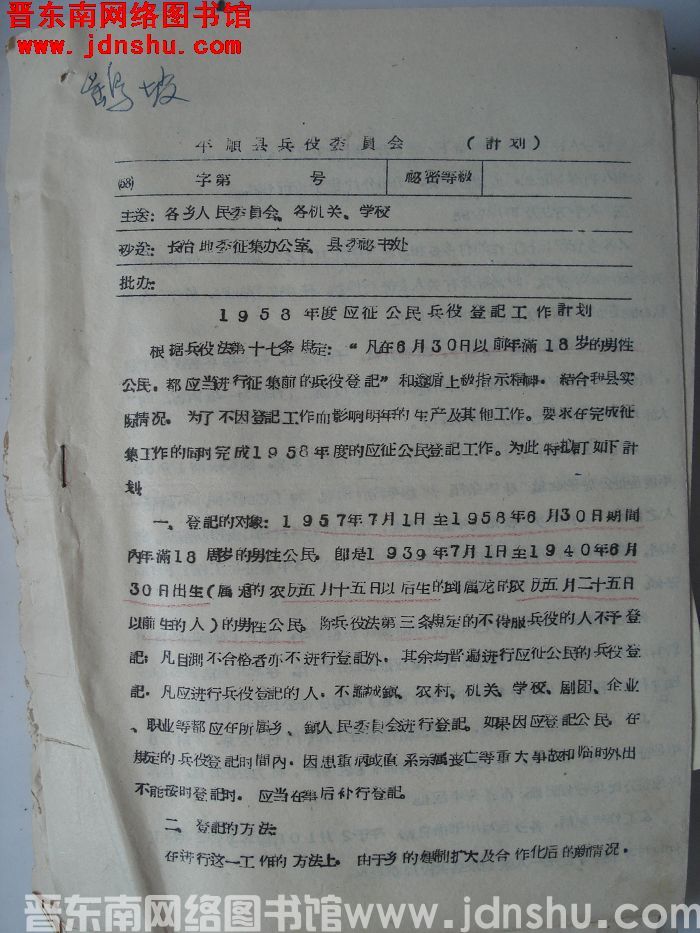 晋东南网络图书馆
www.jdnshu.com
平順县兵役委員会 (計划)
(58) 字第 号 秘密等級
主送: 各乡人民委員会、各机关、学校
抄送: 长治地委征集办公室、县委秘书处
批办:
1958年度应征公民兵役登記工作計划
根据兵役法第十七条規定:“凡在6月30日以前年滿18岁的男性
公民,都应当进行征集前的兵役登記”和遵循上級指示精神,結合我县实
际情况。为了不因登記工作而影响明年的生产及其他工作。要求在完成征
集工作的同时完成1958年度的应征公民登記工作。为此特拟訂如下計
划
一、登記的对象:1957年7月1日至1958年6月30日期間
內年滿18周岁的男性公民,即是1939年7月1日至1940年6月
30日出生(属兎的农历五月十五日以后生的到属龙的农历五月二十五日
以前生的人)的男性公民,除兵役法第三条規定的不得服兵役的人不予登
記;凡目測不合格者亦不进行登記外,其余均普遍进行应征公民的兵役登
記,凡应进行兵役登記的人,不論城鎮、农村、机关、学校、剧团、企业
、职业等都应在所属乡、鎮人民委員会进行登記。如果因应登記公民,在
規定的兵役登記时間內,因患重病或直系亲属丧亡等重大事故和临时外出
不能按时登記时,应当在事后补行登記。
二、登記的方法:
在进行这一工作的方法上,由于乡的編制扩大及合作化后的新情况,
晋东南网络图书馆 www.jdnshu.com